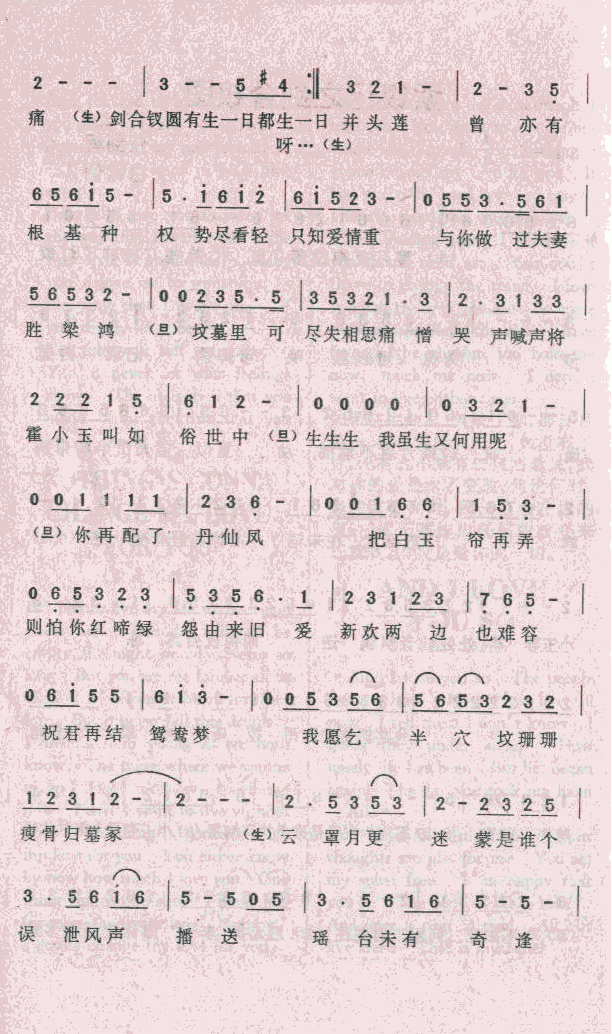 2 - - - | 3 - - 5 #4 :‖ 3 2 1 - | 2 - 3 5
痛 （生）剑合钗圆有生一日都生一日 并头莲 曾 亦有
呀…（生）
6 5 6 1 5 - | 5 · 1 6 1 2 | 6 1 5 2 3 - | 0 5 5 3 · 5 6 1
根 基 种 权 势尽看轻 只知爱情重 与你做 过夫妻
5 6 5 3 2 - | 0 0 2 3 5 · 5 | 3 5 3 2 1 · 3 | 2 · 3 1 3 3
胜 梁 鸿 （旦）坟墓里 可 尽失相思痛 憎 哭 声喊声将
2 2 2 1 5 | 6 1 2 - | 0 0 0 0 | 0 3 2 1 -
霍小玉叫如 俗世中（旦）生生生 我虽生又何用呢
0 0 1 1 1 1 | 2 3 6 - | 0 0 1 6 6 | 1 5 3 -
（旦）你再配了 丹仙凤 把白玉 帘再弄
0 6 5 3 2 3 | 5 3 5 6 · 1 | 2 3 1 2 3 | 7 6 5 -
则怕你红啼绿 怨由来旧 爱 新欢两 边 也难容
0 6 1 5 5 | 6 1 3 - | 0 0 5 3 5 6 | 5 6 5 3 2 3 2
祝君再结 鸳鸯梦 我愿乞 半 穴 坟珊珊
1 2 3 1 2 - | 2 - - - | 2 · 5 3 5 3 | 2 - 2 3 2 5
瘦骨归墓冢 （生）云 罩月更 迷 蒙是谁个
3 · 5 6 1 6 | 5 - 5 0 5 | 3 · 5 6 1 6 | 5 - 5 -
误 泄风声 播 送 瑶 台未有 奇 逢